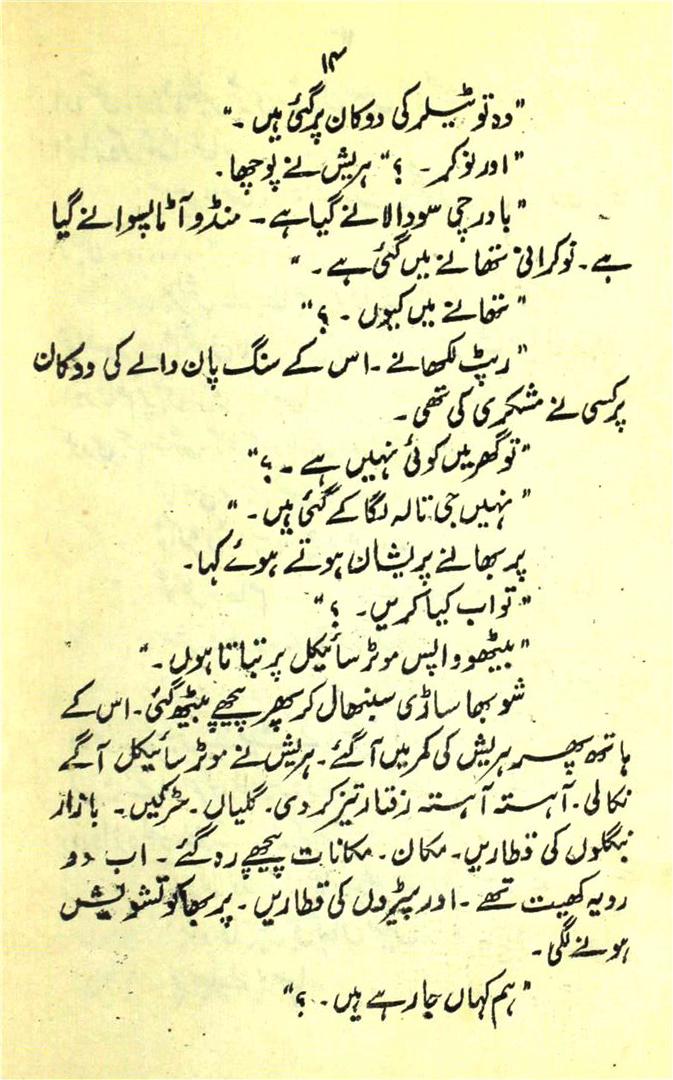 ۱۴
"وہ تو ٹیلر کی دوکان پر گئی ہیں۔"
"اور نوکر۔ ؟" ہریش نے پوچھا۔
"باورچی سودا لانے گیا ہے۔ منڈو آٹا پسوانے گیا
ہے۔ نوکرانی تھانے میں گئی ہے۔"
"تھانے میں کیوں۔ ؟"
"رپٹ لکھانے۔ اس کے سنگ پان والے کی دوکان
پر کسی نے مشکری کی تھی۔
"تو گھر میں کوئی نہیں ہے۔ ؟"
"نہیں جی تالہ لگا کے گئی ہیں۔"
پربھا نے پریشان ہوتے ہوئے کہا۔
"تو اب کیا کریں۔ ؟"
"بیٹھو واپس موٹر سائیکل پر بتاتا ہوں۔"
شوبھا ساڑی سنبھال کر پھر پیچھے بیٹھ گئی۔ اس کے
ہاتھ پھر ہریش کی کمر میں آ گئے۔ ہریش نے موٹر سائیکل آگے
نکالی۔ آہستہ آہستہ رفتار تیز کر دی۔ گلیاں۔ سڑکیں۔ بازار
بنگلوں کی قطاریں۔ مکان۔ مکانات پیچھے رہ گئے۔ اب دو
رویہ کھیت تھے۔ اور پیڑوں کی قطاریں۔ پربھا کو تشویش
ہونے لگی۔
"ہم کہاں جا رہے ہیں۔ ؟"